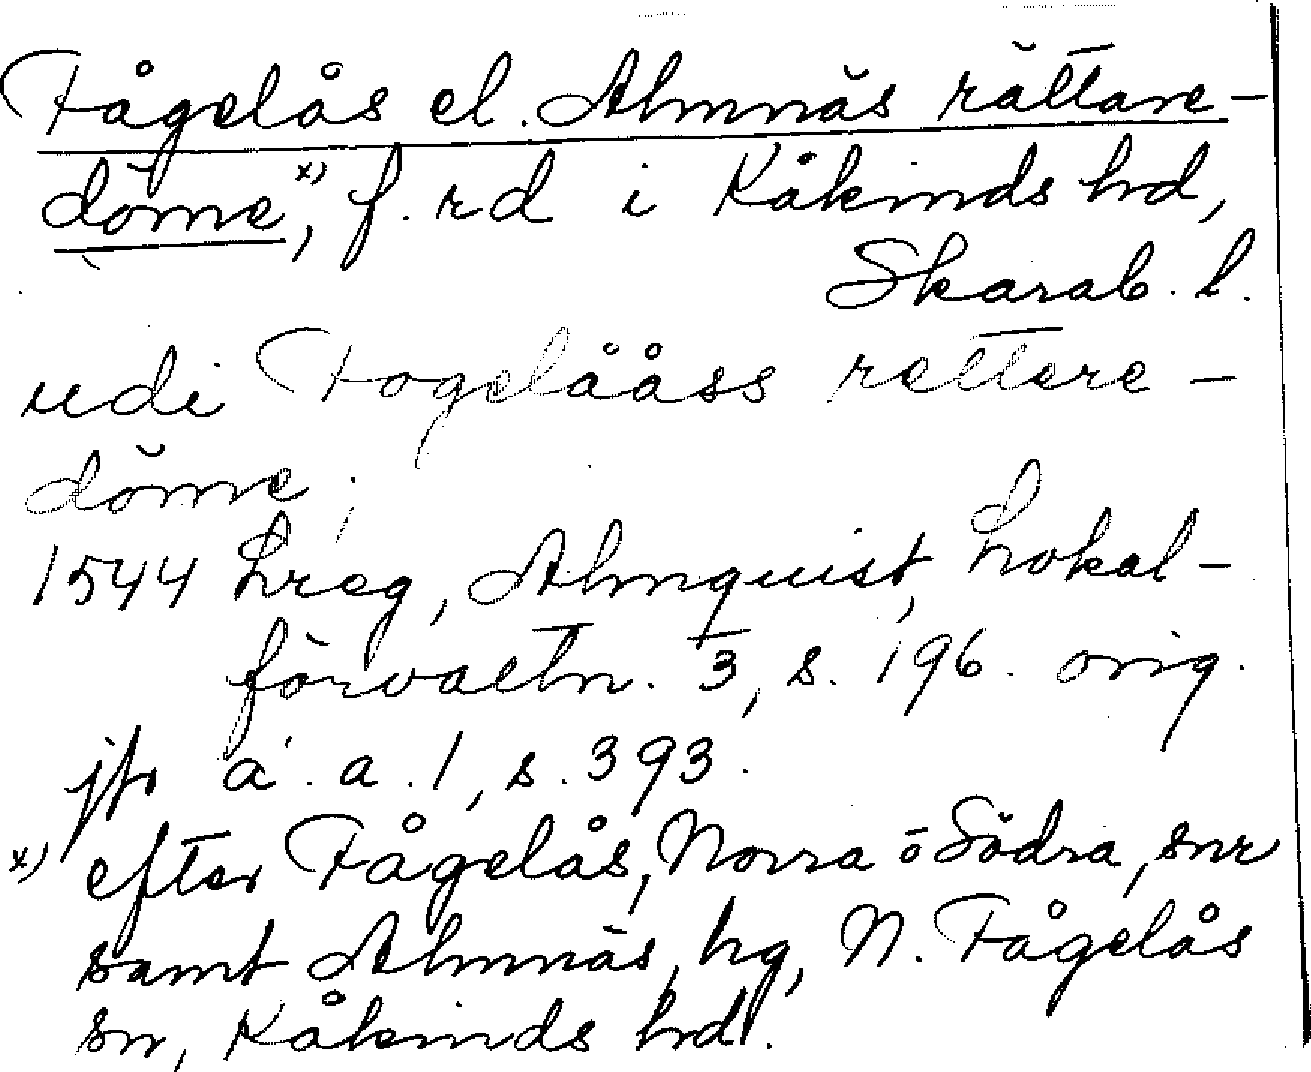 Fågelås el. Almnäs rättare-
döme x), f. rd i Kåkinds hd,
Skarab. l.
udi Fogelååss rettere-
döme;
1544 Lreg, Almquist, Lokal-
förvaltn. 3, s. 196. orig.
jfr a. a. 1, s. 393.
x) efter Fågelås, Norra o Södra, snr
samt Almnäs, hg, N. Fågelås
sn, Kåkinds hd.